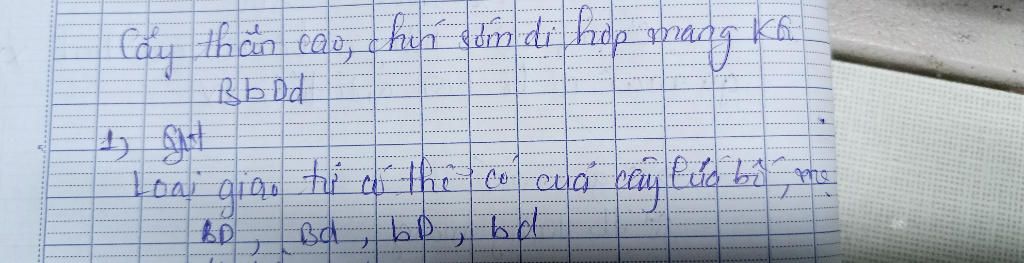 Cây thân cao, chín sớm dị hợp mang KG
BbDd
1) 
Loại giao tử có thể có của cây lúa bố, mẹ
BD, Bd, bD, bd